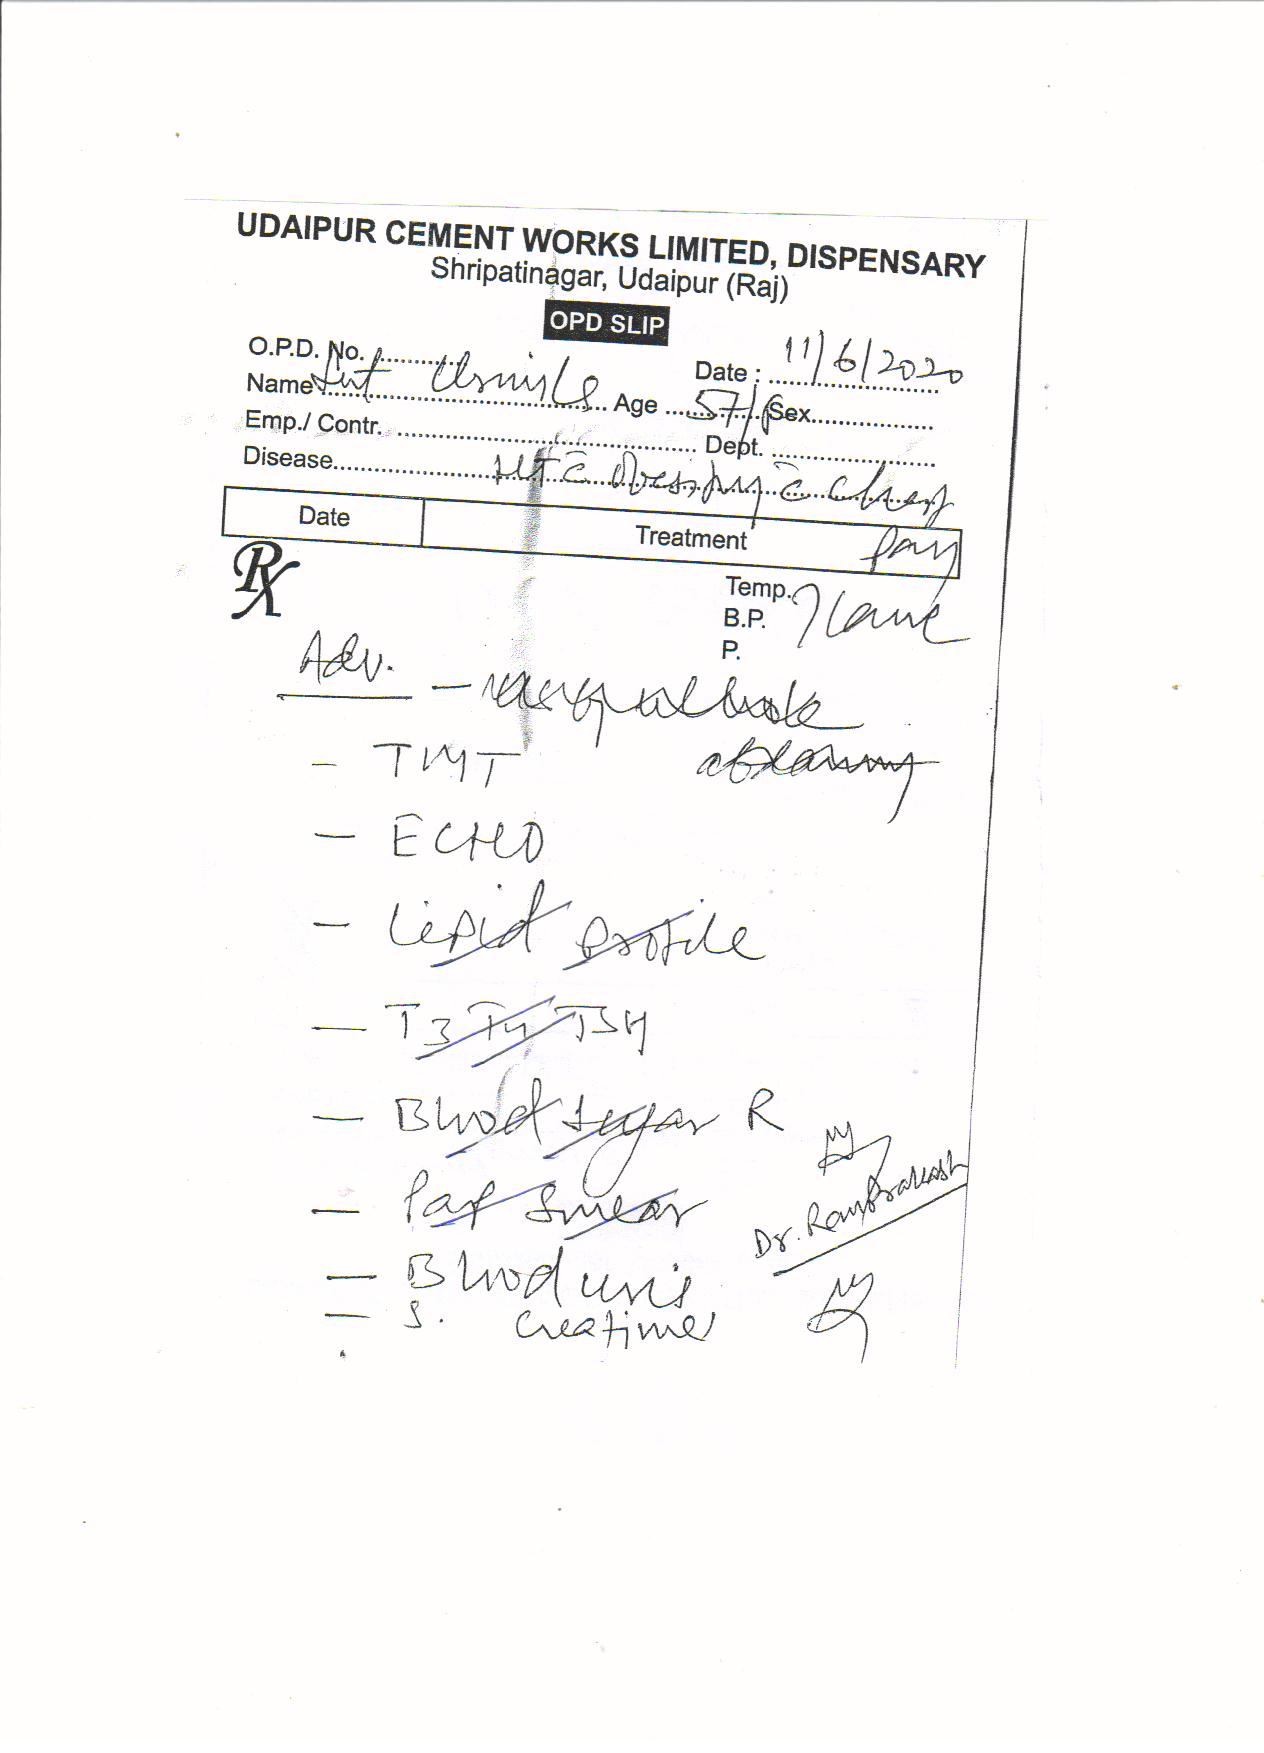 UDAIPUR CEMENT WORKS LIMITED, DISPENSARY
Shripatinagar, Udaipur (Raj)
OPD SLIP
O.P.D. No. ............ Date : 11/6/2020
Name Smt ............ Age 57/F Sex............
Emp./ Contr. ............ Dept. ............
Disease............ HT c̄ Obesity c̄ Chest
Pain
Date Treatment
Rx
Temp.
B.P.
P.
Adv. -
- TMT
- ECHO
- Lipid Profile
- T3 T4 TSH
- Blood Sugar R
- Pap Smear
Dr. Ram Prakash
- Blood
- S. Creatine